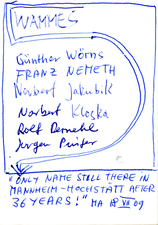 WAMMES
Günther Wörns
FRANZ NEMETH
Norbert Jakubik
Norbert Kloska
Rolf
Jürgen
"ONLY NAME STILL THERE IN
MANNHEIM-HOCHSTÄTT AFTER
36 YEARS!" MA 18 VII 09